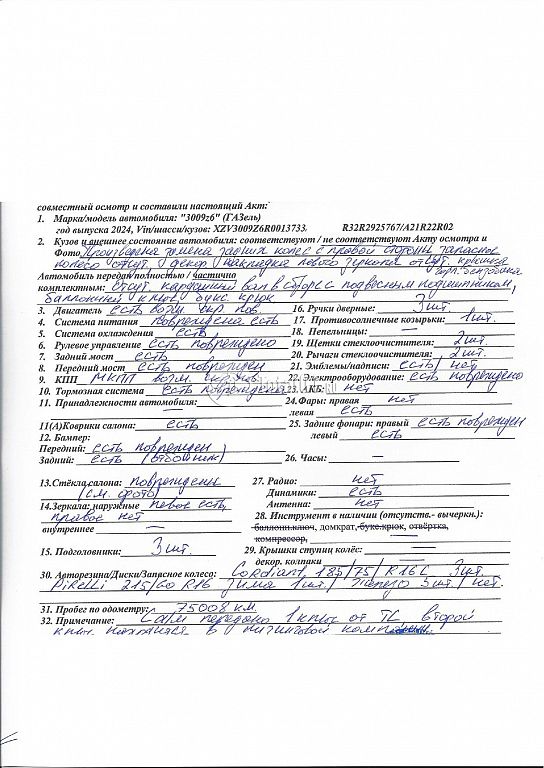 совместный осмотр и составили настоящий Акт:
1. Марка/модель автомобиля: "3009z6" (ГАЗель)
год выпуска 2024, Vin/шасси/кузов: XZV3009Z6R0013733. R32R2925767/A21R22R02
2. Кузов и внешнее состояние автомобиля: соответствуют / не соответствуют Акту осмотра и
Фото Произведена замена задних колес с правой стороны запасное
колесо отсут. декор. накладка левого зеркала отсут. крышка
горл. бензобака
Автомобиль передан полностью / частично
комплектным: отсут. карданный вал в сборе с подвесным подшипником,
баллонный ключ, букс. крюк
3. Двигатель есть возм. скр. пов. 16. Ручки дверные: 3 шт.
4. Система питания повреждена есть 17. Противосолнечные козырьки: 1 шт.
5. Система охлаждения есть 18. Пепельницы: —
6. Рулевое управление есть повреждено 19. Щетки стеклоочистителя: 2 шт.
7. Задний мост есть 20. Рычаги стеклоочистителя: 2 шт.
8. Передний мост есть поврежден 21. Эмблемы/надписи: есть / нет
9. КПП МКПП возм. скр. пов. 22. Электрооборудование: есть повреждено
10. Тормозная система есть повреждена 23. АКБ: нет
11. Принадлежности автомобиля: — 24. Фары: правая нет
левая есть
11(А) Коврики салона: есть 25. Задние фонари: правый есть поврежден
12. Бампер: левый есть
Передний: есть поврежден
Задний: есть (отбойник) 26. Часы: —
13. Стёкла салона: повреждены 27. Радио: нет
(см. фото) Динамики: есть
14. Зеркала: наружные левое есть, Антенна: нет
правое нет 28. Инструмент в наличии (отсутств.- вычеркн.):
внутреннее — баллонн.ключ, домкрат, букс.крюк, отвёртка,
компрессор,
15. Подголовники: 3 шт. 29. Крышки ступиц колёс: —
декор. колпаки —
30. Авторезина/Диски/Запасное колесо: Cordiant 185/75/R16C 3 шт.
Pirelli 215/60 R16 зима 1 шт. / железо 5 шт. / нет.
31. Пробег по одометру: 75008 км.
32. Примечание: передано 1 ключ от ТС второй
ключ находится в лизинговой компании